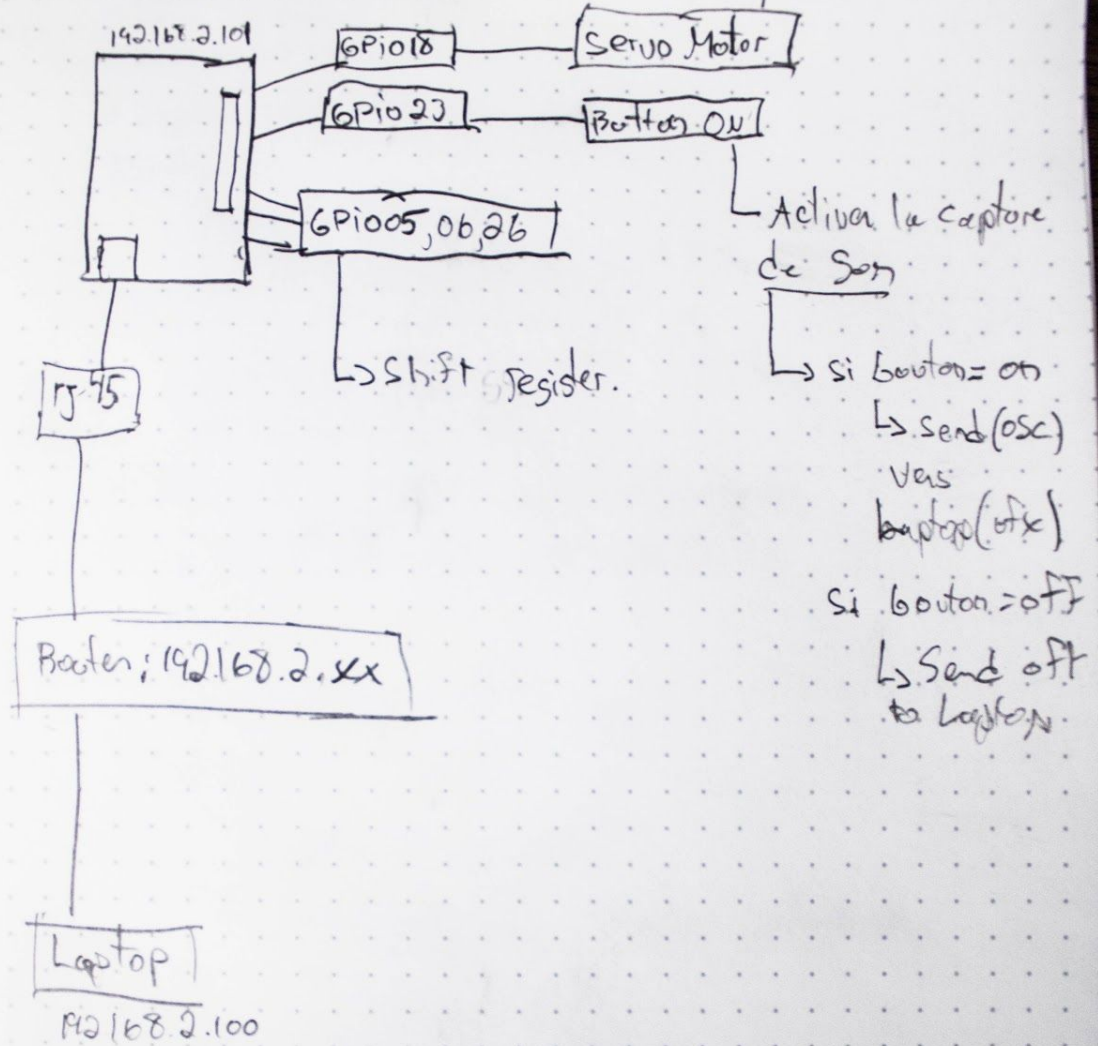 192.168.2.101
GPiO18
Servo Motor
GPiO23
Button ON
GPiO05,06,26
Activer la capture
de Son
Shift register.
rj-45
si bouton= on
send(osc)
vers
laptop(ofx)
si bouton=off
Send off
to Laptop
Router: 192.168.2.xx
Laptop
192168.2.100